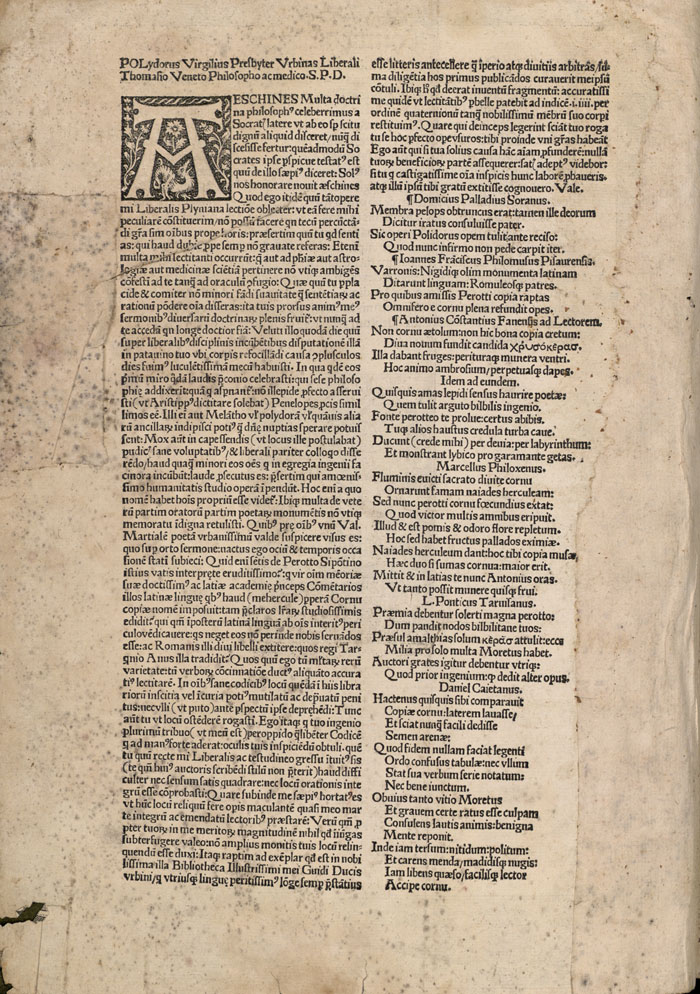 POLydorus Virgilius Presbyter Vrbinas Liberali
Thomasio Veneto Philosopho ac medico. S. P. D.
AESCHINES Multa doctri
na philosophꝰ celeberrimus a
Socratꝭ latere vt ab eo sp scitu
dignū aliquid disceret/ nūqͣ di
scessisse fertur: quēadmodū So
crates ipse pspicue testatꝰ est
quū de illo sæpiꝰ diceret: Solꝰ
nos honorare nouit æschines
Quod ego itidē quū tātopere
mi Liberalis Plyniana lectiōne oblecter: vt eā fere mihi
peculiarē cōstituerim/ nō possū facere qn tecū percūctā-
di gr̄a sim oībus propēsioris: præsertim quū tu qd senti
as: qui haud dubie ppe semp nō grauate referas: Etenī
multa mihi lectitanti occurrūt: q̄ aut ad phiæ aut astro-
logiæ aut medicinæ sciētiā pertinere nō vtiqꝫ ambigēs
cōfesti ad te tanqͣ ad oraculū ɔfugio: Quæ quū tu ppla
cide & comiter nō minori fādi suauitate qͣ sentētiaꝝ ac
rationū pōdere oīa disseras: ita tuis prorsus animꝰ meꝰ
sermonibꝰ diuersarū doctrinaꝝ plenis fruiť: vt nunqͣ ad
te accedā qn longe doctior fiā: Veluti illo quodā die quū
super liberalibꝰ disciplinis incūbētibus disputationē illā
in patauino tuo vbi corpis refocillādi causa ɔplusculos
dies fuimꝰ luculētissimā mecū habuisti. In qua qdē eos
pͥmū miro qͦdā laudis pͣconio celebrasti: qui sese philoso
phiæ addixerīt: quā q aspnant nō illepide pfecto asserui
sti (vt Aristippꝰ dictitare solebat) Penelopes pcis simil
limos eē. Illi ei aut Melāthō vl polydorā vl quāuis aliā
rū ancillaꝝ indipisci potiꝰ q dn̄æ nuptias sperare potuis
sent: Mox aūt in capessendis (vt locus ille postulabat)
pudicꝭ sane voluptatibꝰ/ & liberali pariter colloqo disse
rēdo/ haud quaqͣ minori eos oēs q in egregia ingenii fa
cinora incūbūt: laude psecutus es: psertim qui amœnis-
simo humanitatis studio operā ipendūt. Hoc enī a quo
nomē habet hoīs propriū esse videť: Ibiqꝫ multa de vete
rū partim oratorū partim poetaꝝ monumētis nō vtiqꝫ
memoratu idigna retulisti. Quibꝰ pre oībꝰ vnū Val.
Martialē poetā vrbanissimū valde suspicere visus es:
quo suꝑ orto sermone: nactus ego ociū & temporis occa
sionē stati subieci: Quid enī sētis de Perotto Sipōtino
istius vatis interprete eruditissimoᷓ: qͥ vir oim meōriæ
suæ doctissimꝰ ac latiæ academiæ pͥnceps Cōmētarios
illos latinæ linguę qͥbꝰ haud (mehercule) pperā Cornu
copiæ nomē imposuit: tam pͣclaros lr̄aꝝ studiosissimis
edidit: qui qm̄ iposterū latinā linguā ab oīs interitꝰ peri
culo vēdicauere: qs neget eos nō perinde nobis seruādos
esse: ac Romanis illi diui libelli extitere: quos regi Tar-
qnio Anus illa tradidit: Quos quū ego tū mͬtaꝝ rerū
varietate: tū verboꝝ cōcinnatiōe ductꝰ aliquāto accura
tiꝰ lectitarē. In oībꝰ sane codicibꝰ locū quēdā i huis libra
riorū inscitia vel icuria potiꝰ mutilatū ac deprauatū peni
tus: necvlli (vt puto) ante pspectū ipse deprehēdi: Tunc
aūt tu vt locū ostēderē rogasti. Ego itaqꝫ q tuo ingenio
plurimū tribuo (vt meū est) peroppido qͣlibēter Codicē
q ad manꝰ forte aderat: oculis tuis inspiciēdū obtuli. quē
tu quū recte mi Liberalis ac testudineo gressu ituitꝰ sis
(te qm̄ huiꝰ auctoris scribēdi stilū non pͣterit) haud diffi
culter nec sensum satis quadrare: nec locū orationis inte
grū esse cōprobasti: Quare subinde me sæpiꝰ hortatꝰ es
vt hūc locū reliquū fere opis maculantē quasi meo mar
te integrū ac emendatū lectoribꝰ præstarē: Verū qm̄ p
pter tuoꝝ in me meritoꝝ magnitudinē nihil qd iniūgas
subterfugere valeo: nō amplius monitis tuis locū relin-
quendū esse duxi: Itaqꝫ raptim ad exēplar qd est in nobi
lissima illa Bibliotheca Illustrissimi mei Guidi Ducis
vrbini/ q vtriusqꝫ linguę peritissimꝰ lōge semp pͣstātius
esse litteris antecellere qͣ iperio atqꝫ diuitiis arbitraꝰ/ sū-
ma diligētia hos primus publicādos curauerit me ipsū
cōtuli. Ibiqꝫ id qd decrat inuentū fragmentū: accuratissi
me quidē vt lectitātibꝰ pbelle patebit ad indicē .i.iiii. per
ordinē quaternionū tanqͣ nobilissimū mēbrū suo corpi
restituimꝰ. Quare qui deinceps legerint sciāt tuo roga
tu se hoc pfecto opevsuros: tibi proinde vni gr̄as habeāt
Ego aūt qui si tua solius causa hāc aīam pfunderē: nullā
tuoꝝ beneficioꝝ partē assequerer: satꝭ adeptꝰ videbor:
si tu q castigatissime oīa inspicis hunc laborē pbaueris.
atqꝫ illū ipsū tibi gratū extitisse cognouero. Vale.
¶ Domicius Palladius Soranus.
Membra pelops obtruncus erat: tamen ille deorum
Dicitur iratus consuluisse pater.
Sic operi Polidorus opem tulit: ante reciso:
Quod nunc infirmo non pede carpit iter.
¶ Ioannes Frāciscus Philomusus Pisaurensis.
Varronis: Nigidiqꝫ olim monumenta latinam
Ditarunt linguam: Romuleosqꝫ patres.
Pro quibus amissis Perotti copia raptas
Omnifero e cornu plena refundit opes.
¶ Antonius Cōstantius Fanensis ad Lectorem.
Non cornu ætolum: non hic bona copia cretum:
Diua nouum fundit candida χρυσόκερασ.
Illa dabant fruges: perituraqꝫ munera ventri.
Hoc animo ambrosium/ perpetuasqꝫ dapes.
Idem ad eundem.
Quisquis amas lepidi sensus haurire poetæ:
Quem tulit arguto bilbilis ingenio.
Fonte perotteo te prolue: certus abibis.
Tuqꝫ alios haustus credula turba caue.
Ducunt (crede mihi) per deuia: per labyrinthum:
Et monstrant lybico pro garamante getas.
Marcellus Philoxenus.
Fluminis euicti sacrato diuite cornu
Ornarunt famam naiades herculeam:
Sed nunc perotti cornu fœcundius extat:
Quod victor multis amnibus eripuit.
Illud & est pomis & odoro flore repletum.
Hoc sed habet fructus pallados eximiæ.
Naiades herculeum dant: hoc tibi copia musæ
Hæc duo si sumas cornua: maior erit.
Mittit & in latias te nunc Antonius oras.
Vt tanto possit munere quisqꝫ frui.
L. Ponticus Taruisanus.
Præmia debentur solerti magna perotto:
Dum pandit nodos bilbilitane tuos:
Præsul amalthias solum κέρασ attulit: ecco
Milia pro solo multa Moretus habet.
Auctori grates igitur debentur vtriqꝫ:
Quod prior ingenium: qꝫ dedit alter opus.
Daniel Caietanus.
Hactenus quisquis sibi comparauit
Copiæ cornu: laterem lauasse/
Et sciat nunqͣ facili dedisse
Semen arenæ:
Quod fidem nullam faciat legenti
Ordo confusus tabulæ: nec vllum
Stat sua verbum serie notatum:
Nec bene iunctum.
Obuius tanto vitio Moretus
Et grauem certe ratus esse culpam
Consulens lautis animis: benigna
Mente reponit.
Inde iam tersum: nitidum: politum:
Et carens menda/ madidisqꝫ nugis:
Iam libens quæso/ facilisqꝫ lector
Accipe cornu.